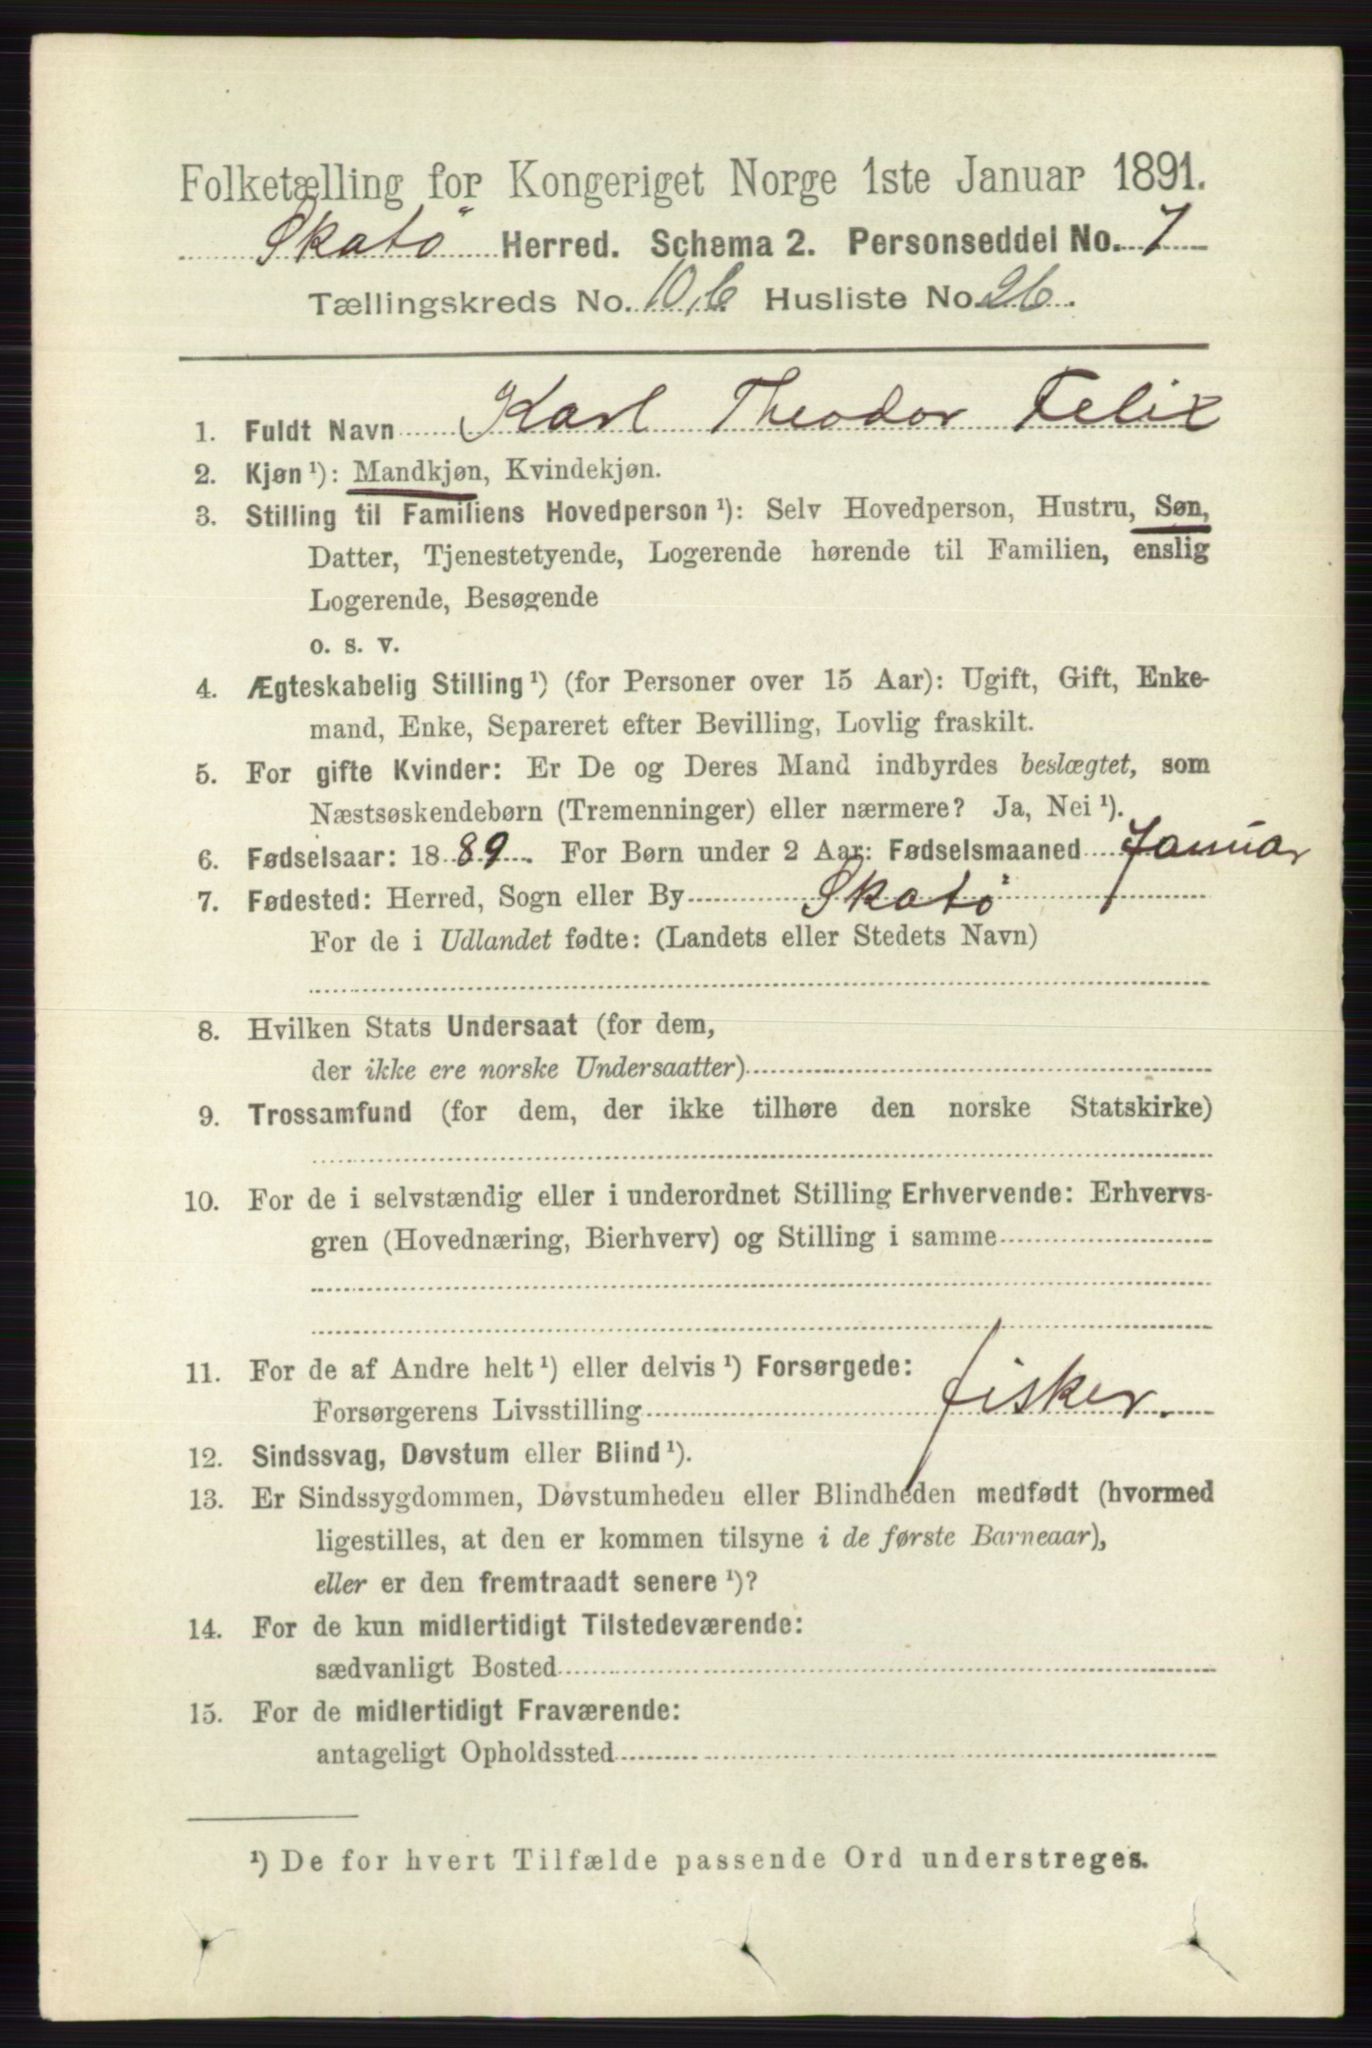 Folketælling for Kongeriget Norge 1ste Januar 1891.
Skatö Herred. Schema 2. Personseddel No. 7
Tællingskreds No. 10,6 Husliste No. 26.
1. Fuldt Navn Karl Theodor Felix
2. Kjøn ¹): Mandkjøn, Kvindekjøn.
3. Stilling til Familiens Hovedperson ¹): Selv Hovedperson, Hustru, Søn,
Datter, Tjenestetyende, Logerende hørende til Familien, enslig
Logerende, Besøgende
o. s. v.
4. Ægteskabelig Stilling ¹) (for Personer over 15 Aar): Ugift, Gift, Enke-
mand, Enke, Separeret efter Bevilling, Lovlig fraskilt.
5. For gifte Kvinder: Er De og Deres Mand indbyrdes beslægtet, som
Næstsøskendebørn (Tremenninger) eller nærmere? Ja, Nei ¹).
6. Fødselsaar: 1889. For Børn under 2 Aar: Fødselsmaaned Januar
7. Fødested: Herred, Sogn eller By Skatö
For de i Udlandet fødte: (Landets eller Stedets Navn)
8. Hvilken Stats Undersaat (for dem,
der ikke ere norske Undersaatter)
9. Trossamfund (for dem, der ikke tilhøre den norske Statskirke)
10. For de i selvstændig eller i underordnet Stilling Erhvervende: Erhvervs-
gren (Hovednæring, Bierhverv) og Stilling i samme
11. For de af Andre helt ¹) eller delvis ¹) Forsørgede:
Forsørgerens Livsstilling fisker.
12. Sindssvag, Døvstum eller Blind ¹).
13. Er Sindssygdommen, Døvstumheden eller Blindheden medfødt (hvormed
ligestilles, at den er kommen tilsyne i de første Barneaar),
eller er den fremtraadt senere ¹)?
14. For de kun midlertidigt Tilstedeværende:
sædvanligt Bosted
15. For de midlertidigt Fraværende:
antageligt Opholdssted
¹) De for hvert Tilfælde passende Ord understreges.